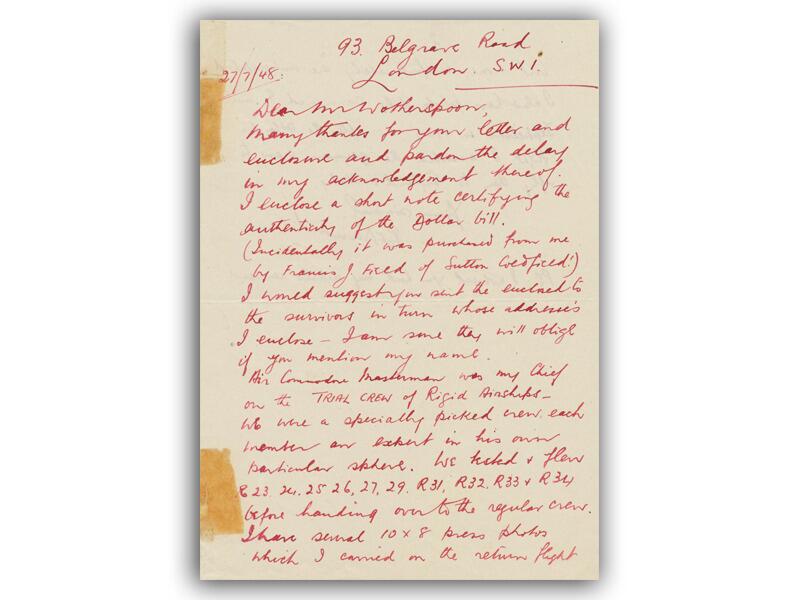 93. Belgrave Road
London. S.W.1.
27/7/48.
Dear Mr Wotherspoon,
Many thanks for your letter and
enclosure and pardon the delay
in my acknowledgement thereof.
I enclose a short note certifying the
authenticity of the Dollar bill.
(Incidentally it was purchased from me
by Francis J. Field of Sutton Coldfield!)
I would suggest you sent the enclosed to
the survivors in turn whose addresses
I enclose – I am sure they will oblige
if you mention my name.
Air Commodore Masterman was my Chief
on the TRIAL CREW of Rigid Airships –
we were a specially picked crew each
member an expert in his own
particular sphere. We tested & flew
R23. 24. 25 26, 27, 29. R31, R32. R33 & R34
before handing over to the regular crew.
I have several 10 x 8 press photos
which I carried on the return flight